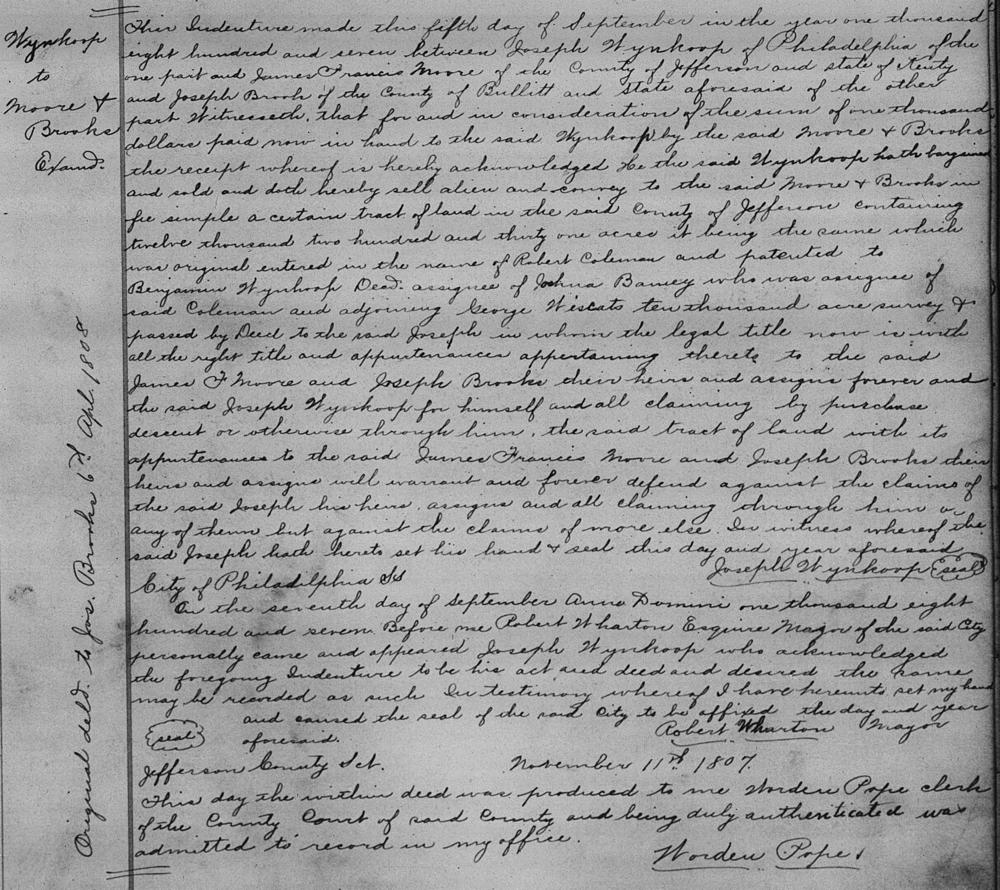 Wynkoop
to
Moore &
Brooks
Examd.
Original deld. to Jos. Brooks 6th Apl. 1808
This Indenture made this fifth day of September in the year one thousand
eight hundred and seven between Joseph Wynkoop of Philadelphia of the
one part and James Francis Moore of the County of Jefferson and state of Kenty
and Joseph Brook of the County of Bullitt and state aforesaid of the other
part Witnesseth, that for and in consideration of the sum of one thousand
dollars paid now in hand to the said Wynkoop by the said Moore & Brooks
the receipt whereof is hereby acknowledged He the said Wynkoop hath bargained
and sold and doth hereby sell alien and convey to the said Moore & Brooks in
fee simple a certain tract of land in the said County of Jefferson containing
twelve thousand two hundred and thirty one acres it being the same which
was original entered in the name of Robert Coleman and patented to
Benjamin Wynkoop Decd. assignee of Joshua Barney who was assignee of
said Coleman and adjoining George Wescats ten thousand acre survey &
passed by Deed to the said Joseph in whom the legal title now is with
all the right title and appurtenances appertaining thereto to the said
James F Moore and Joseph Brooks their heirs and assigns forever and
the said Joseph Wynkoop for himself and all claiming by purchase
descent or otherwise through him, the said tract of land with its
appurtenances to the said James Francis Moore and Joseph Brooks their
heirs and assigns will warrant and forever defend against the claims of
the said Joseph his heirs assigns and all claiming through him or
any of them but against the claims of more else. In witness whereof the
said Joseph hath hereto set his hand & seal this day and year aforesaid
Joseph Wynkoop seal
City of Philadelphia Ss
On the seventh day of September Anno Domini one thousand eight
hundred and seven Before me Robert Wharton Esquire Mayor of the said City
personally came and appeared Joseph Wynkoop who acknowledged
the foregoing Indenture to be his act and deed and desired the same
may be recorded as such In testimony whereof I have hereunto set my hand
and caused the seal of the said City to be affixed the day and year
seal aforesaid. Robert Wharton Mayor
Jefferson County Sct. November 11th 1807.
This day the within deed was produced to me Worden Pope clerk
of the County Court of said County and being duly authenticated was
admitted to record in my office.
Worden Pope